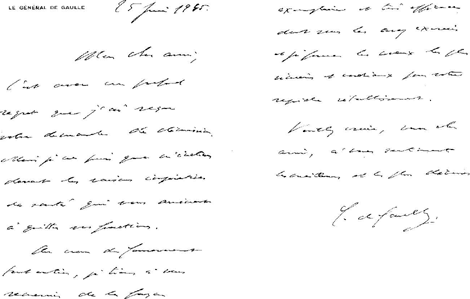 LE GÉNÉRAL DE GAULLE
25 Juin 1965.
Mon cher ami,
C'est avec un profond
regret que j'ai reçu
votre demande de démission.
Mais je ne puis que m'incliner
devant les raisons impératives
de santé qui vous amènent
à quitter vos fonctions.
Au nom du Gouvernement
tout entier, je tiens à vous
remercier de la façon
exemplaire et très efficace
dont vous les avez exercées
et je forme les voeux les plus
sincères et cordiaux pour votre
rapide rétablissement.
Veuillez croire, mon cher
ami, à mes sentiments
les meilleurs et les plus dévoués
C. de Gaulle.